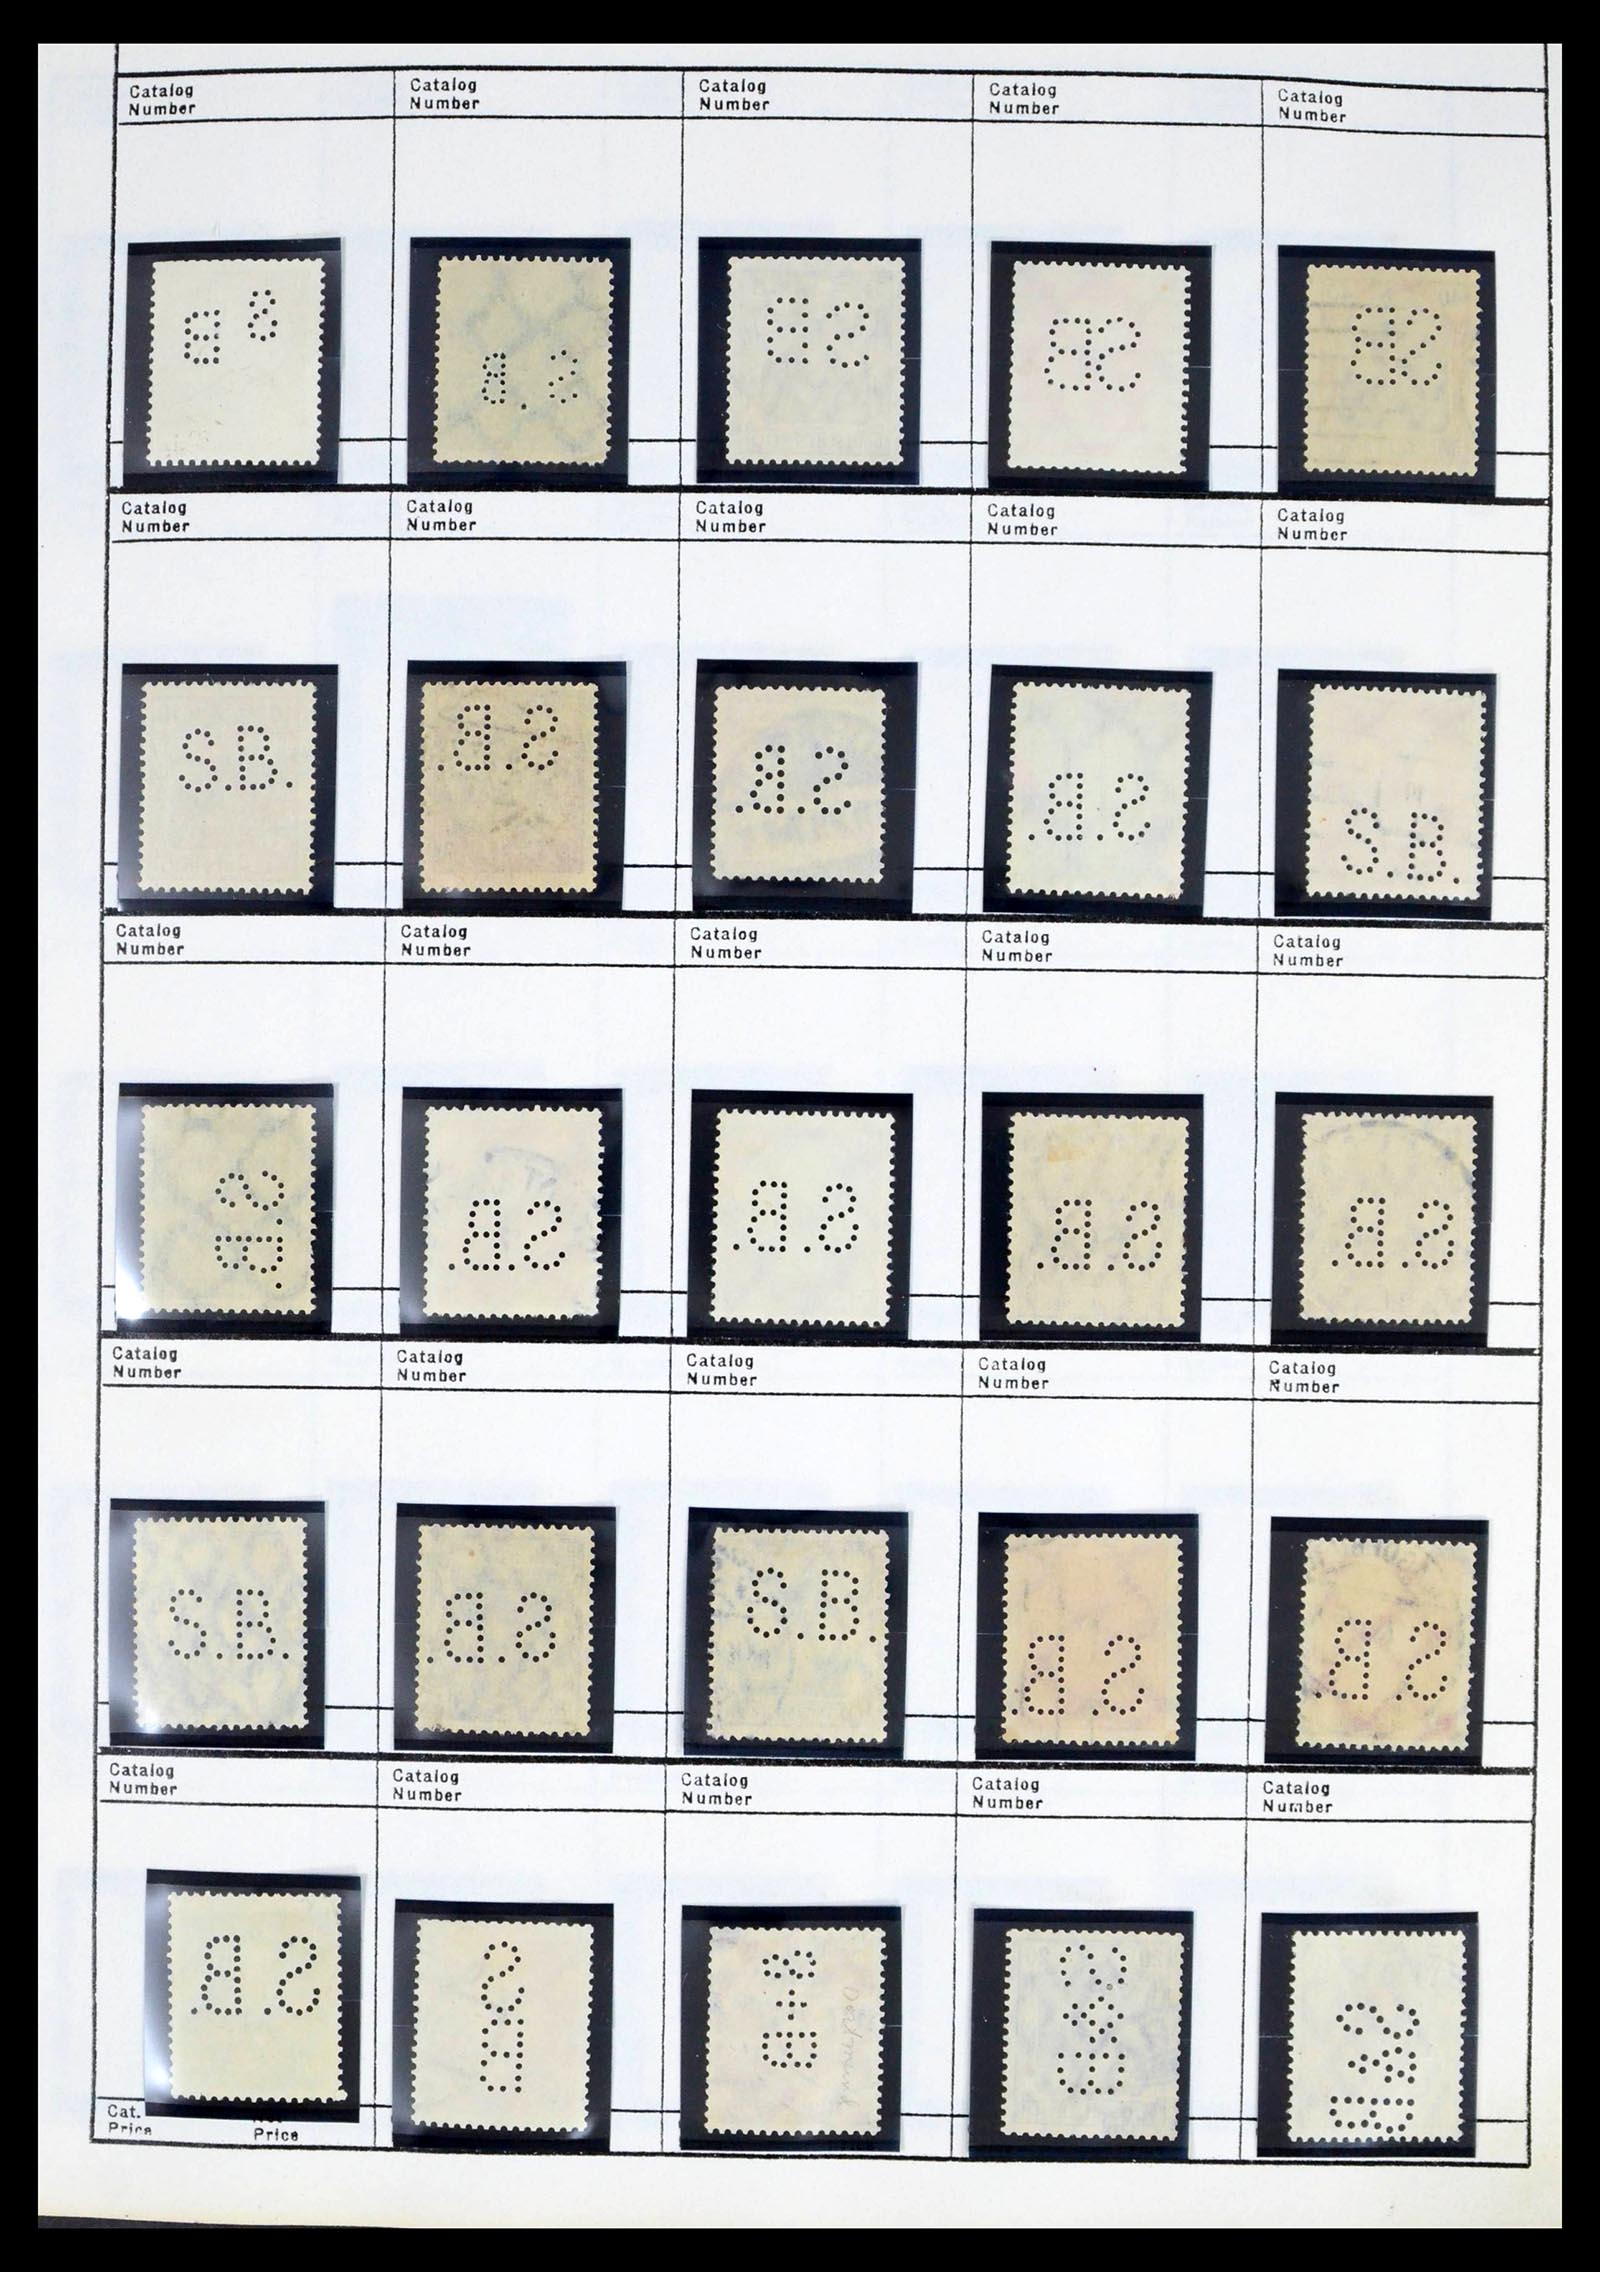 Catalog Number Catalog Number Catalog Number Catalog Number Catalog Number
B S
B. S
B S
B S
B S
Catalog Number Catalog Number Catalog Number Catalog Number Catalog Number
S.B.
.B.S
.B.S
.B.S
S.B.
Catalog Number Catalog Number Catalog Number Catalog Number Catalog Number
S.B.
.B.S
.B.S
.B.S
.B.S
Catalog Number Catalog Number Catalog Number Catalog Number Catalog Number
S.B.
.B.S
S.B.
.B.S
.B.S
Catalog Number Catalog Number Catalog Number Catalog Number Catalog Number
.B.S
S B
S+B
S&B
S&B
Cat. Price
Price